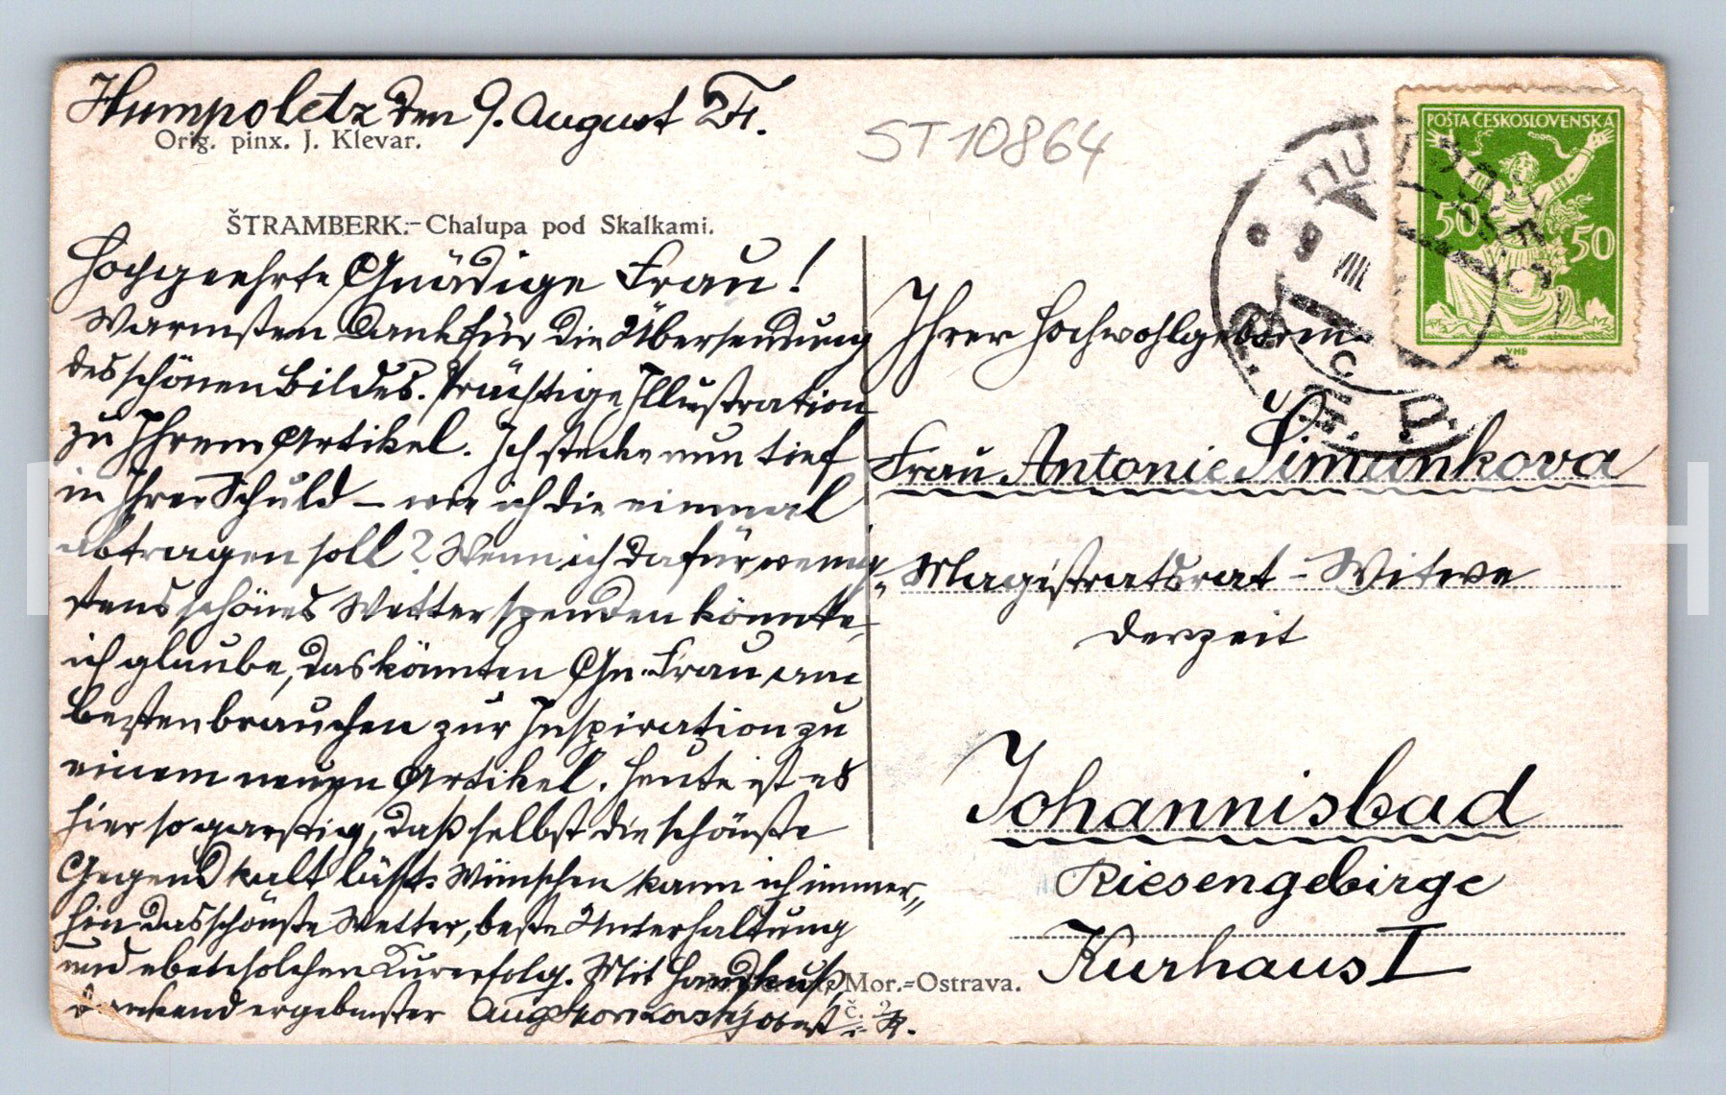 Humpoletz den 9. August 24.
Orig. pinx. J. Klevar.
ST10864
ŠTRAMBERK.-Chalupa pod Skalkami.
Hochgeehrte Gnädige Frau!
Warmsten Dank für die Übersendung
des schönen Bildes. Prächtige Illustration
zu Ihrem Artikel. Ich stecke nun tief
in Ihrer Schuld – wie ich die einmal
abtragen soll? Wenn ich dafür wenig„
stens schönes Wetter spenden könnte,
ich glaube, das könnten Gn. Frau am
besten brauchen zur Inspiration zu
einem neuen Artikel. Heute ist es
hier so garstig, daß selbst die schönste
Gegend kalt läßt. Wünschen kann ich immer„
hin das schönste Wetter, beste Unterhaltung
und ebensolchen Kurerfolg. Mit Handkuß,
dankend ergebenster Aug Oberst i. R.
Mor.-Ostrava.
č. 2
POŠTA ČESKOSLOVENSKÁ
50 50
VHB
9 VIII
Ihrer Hochwohlgeboren
Frau Antonie Šimunkova
Magistratsrat-Witwe
derzeit
Johannisbad
Riesengebirge
Kurhaus I